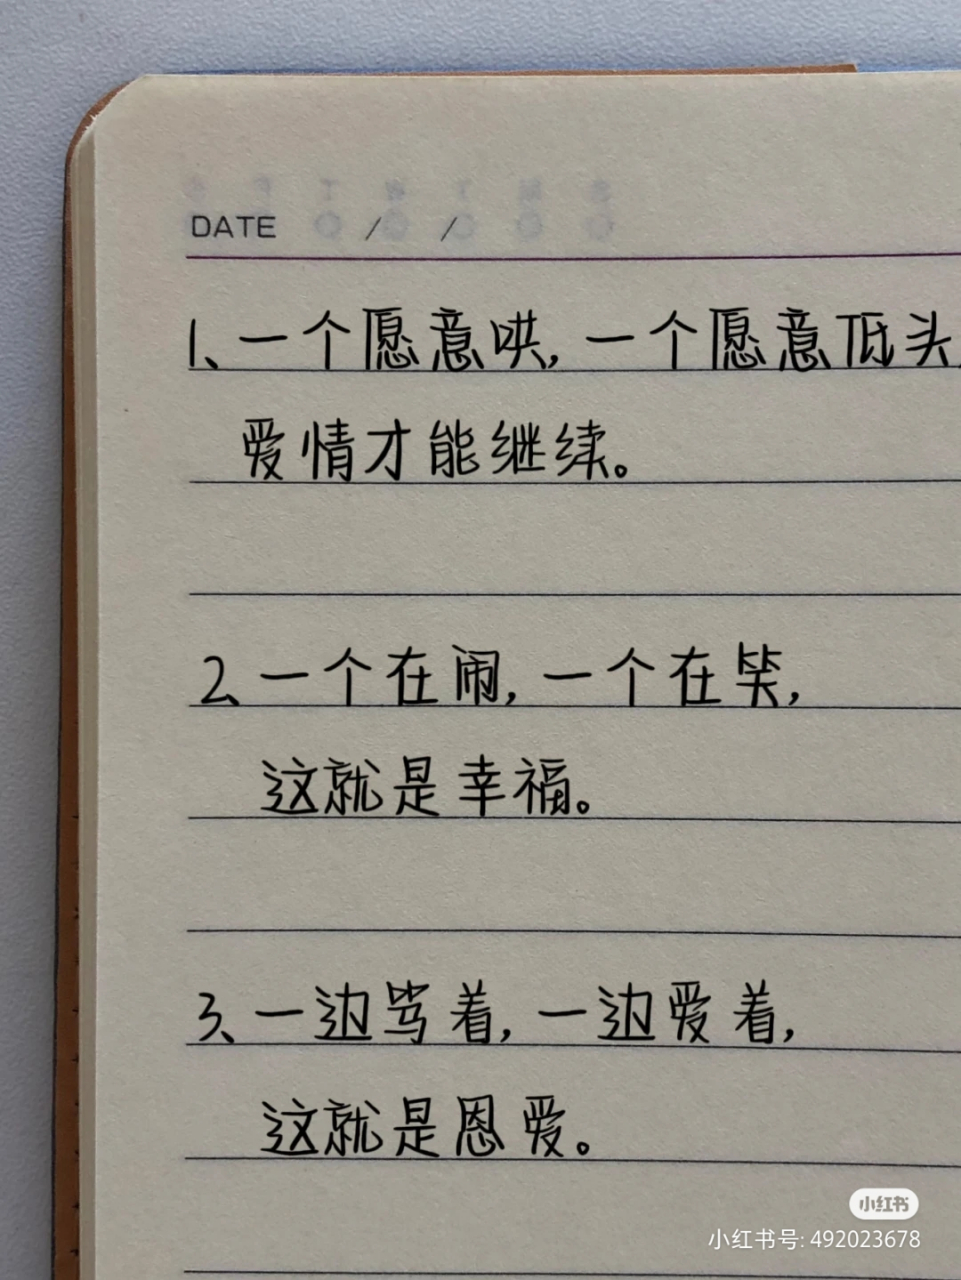 DATE / /
1、一个愿意哄,一个愿意低头,
爱情才能继续。
2、一个在闹,一个在笑,
这就是幸福。
3、一边骂着,一边爱着,
这就是恩爱。
小红书
小红书号: 492023678